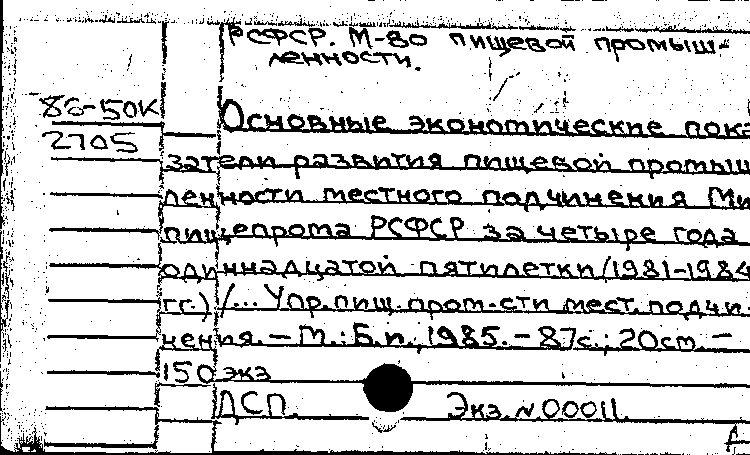 РСФСР. М-во пищевой промыш-
ленности.
86-50К
2705
Основные экономические пока
затели развития пищевой промыш
ленности местного подчинения Ми
пищепрома РСФСР за четыре года
одиннадцатой пятилетки/1981-1984
гг.) /... Упр. пищ. пром-сти мест. подчи-
нения. — М.: Б.и., 1985. — 87с.; 20см. —
150 экз
ДСП. Экз. № 00011.